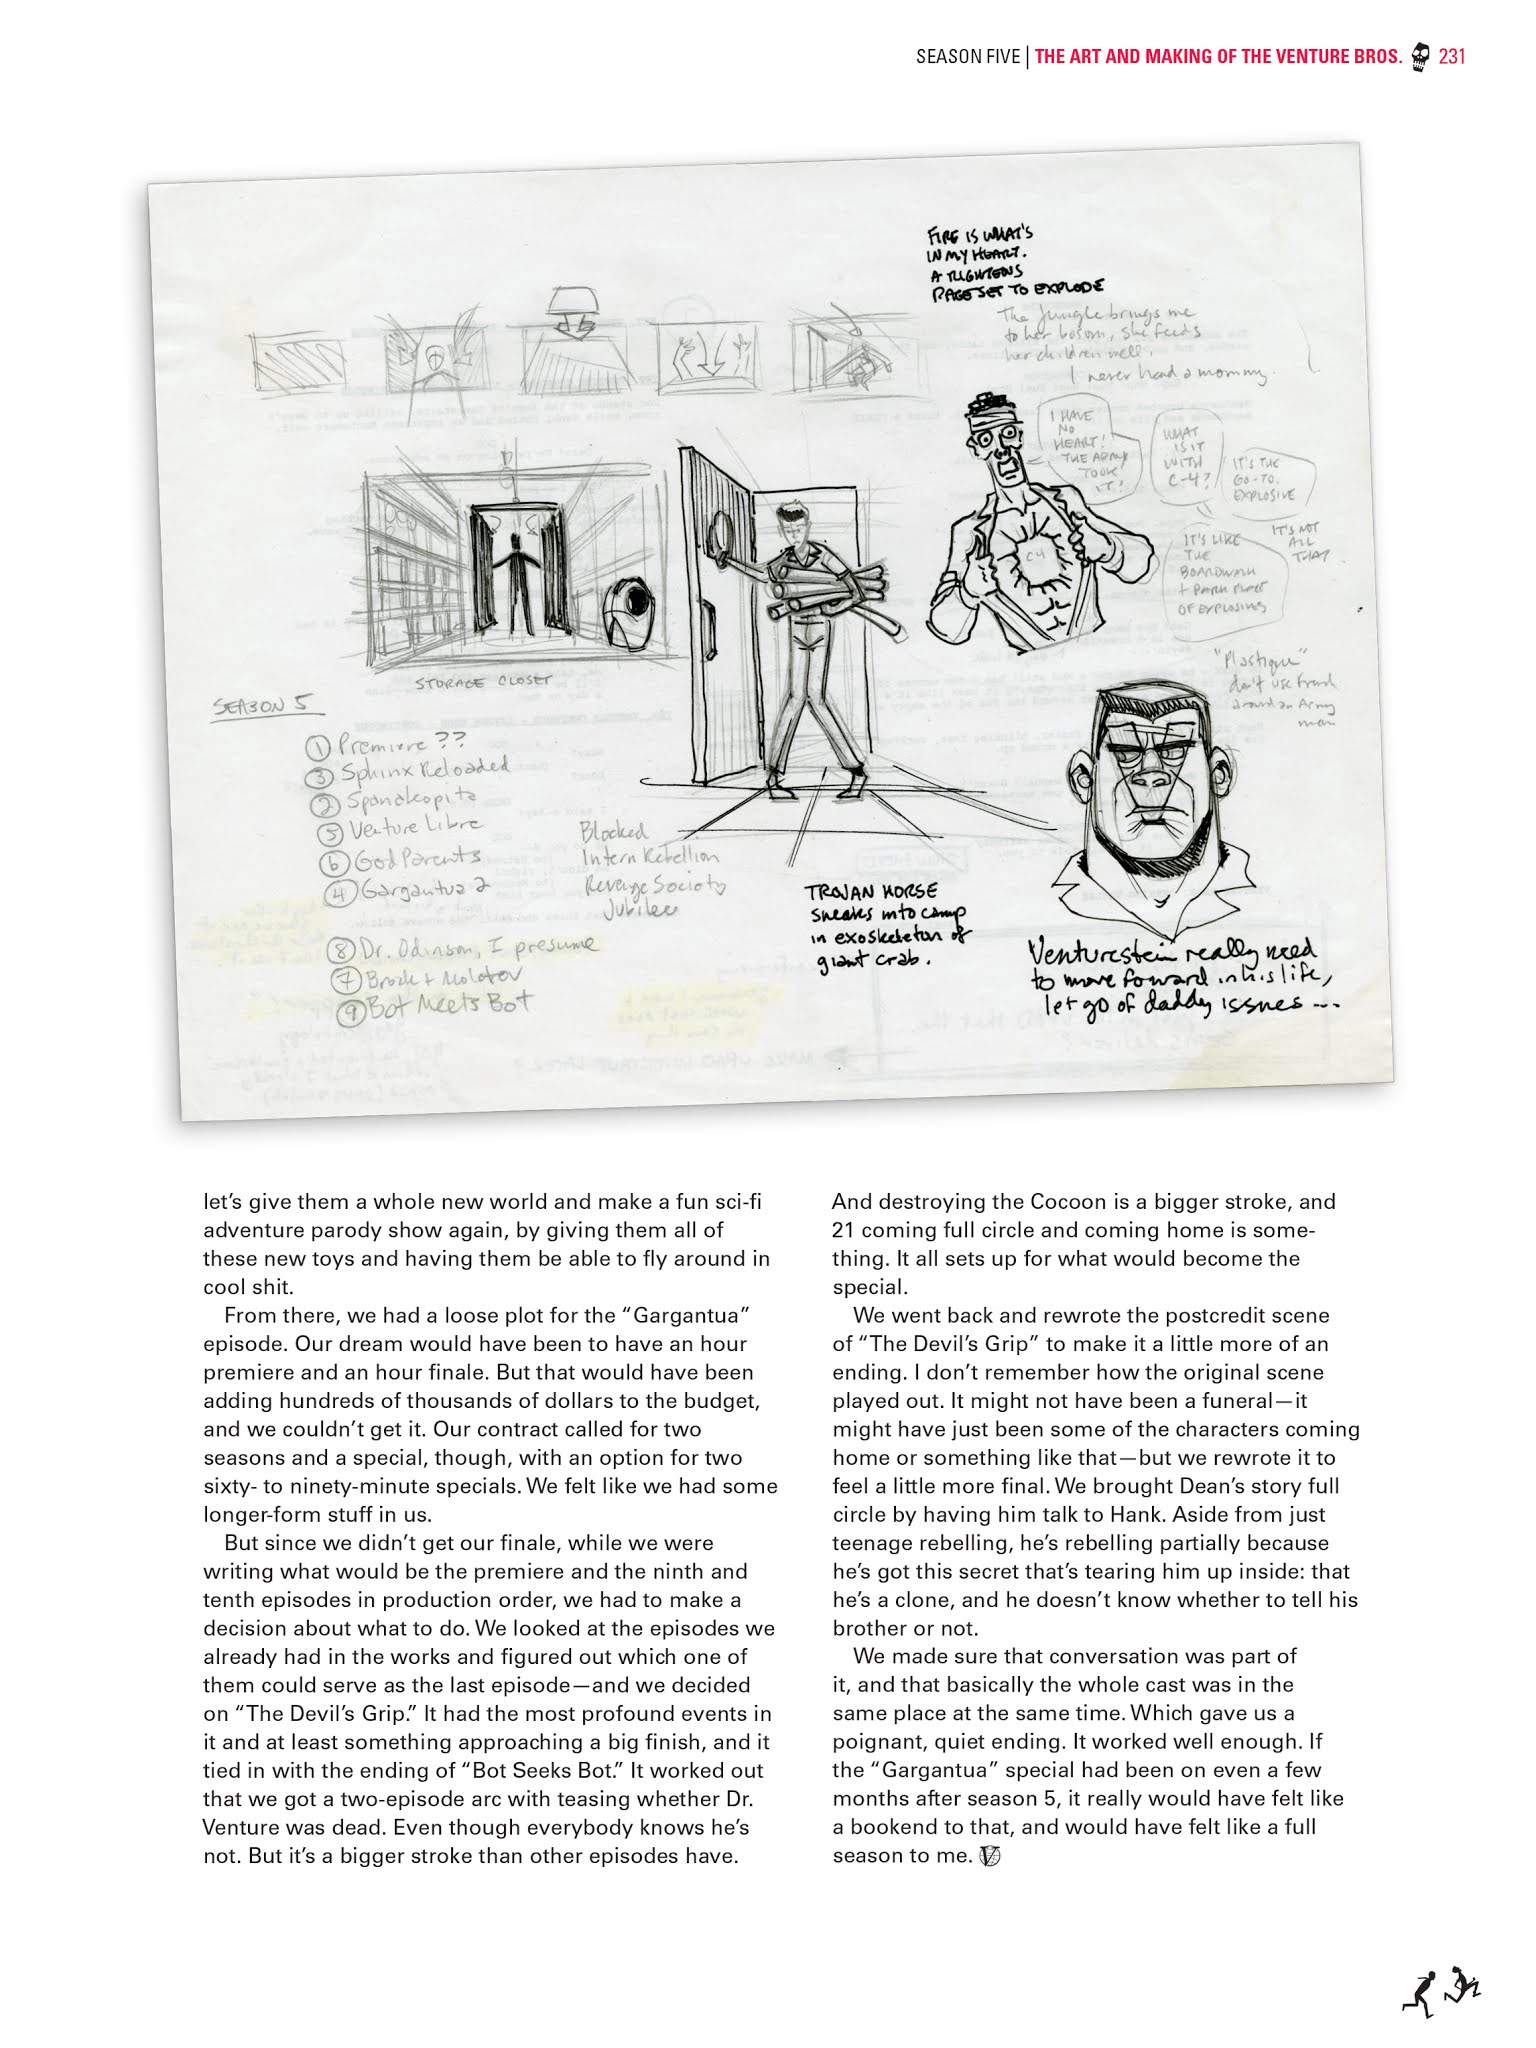 SEASON FIVE | THE ART AND MAKING OF THE VENTURE BROS. 231
FIRE IS WHAT'S
IN MY HEART.
A RIGHTEOUS
RAGE SET TO EXPLODE
The Jungle brings me
to her bosom, she feeds
her children well.
I never had a mommy.
I HAVE
NO
HEART!
THE ARMY
TOOK
IT!
WHAT
IS IT
WITH
C-4?
IT'S THE
GO-TO.
EXPLOSIVE
IT'S LIKE
THE
BOARDWALK
+ PARK PLACE
OF EXPLOSIVES
IT'S NOT
ALL
THAT
C4
"Plastique"
don't use French
around an Army
man
STORAGE CLOSET
SEASON 5
① Premiere ??
③ Sphinx Reloaded
② Spanakopita
⑤ Venture Libre
⑥ God Parents
④ Gargantua 2
⑧ Dr. Odinson, I presume
⑦ Brock + Molotov
⑨ Bot Meets Bot
Blocked
Intern Rebellion
Revenge Society
Jubilee
TROJAN HORSE
sneaks into camp
in exoskeleton of
giant crab.
Venturestein really need
to move foward in his life,
let go of daddy issues ...
let's give them a whole new world and make a fun sci-fi
adventure parody show again, by giving them all of
these new toys and having them be able to fly around in
cool shit.
From there, we had a loose plot for the “Gargantua”
episode. Our dream would have been to have an hour
premiere and an hour finale. But that would have been
adding hundreds of thousands of dollars to the budget,
and we couldn't get it. Our contract called for two
seasons and a special, though, with an option for two
sixty- to ninety-minute specials. We felt like we had some
longer-form stuff in us.
But since we didn't get our finale, while we were
writing what would be the premiere and the ninth and
tenth episodes in production order, we had to make a
decision about what to do. We looked at the episodes we
already had in the works and figured out which one of
them could serve as the last episode—and we decided
on “The Devil's Grip.” It had the most profound events in
it and at least something approaching a big finish, and it
tied in with the ending of “Bot Seeks Bot.” It worked out
that we got a two-episode arc with teasing whether Dr.
Venture was dead. Even though everybody knows he's
not. But it's a bigger stroke than other episodes have.
And destroying the Cocoon is a bigger stroke, and
21 coming full circle and coming home is some-
thing. It all sets up for what would become the
special.
We went back and rewrote the postcredit scene
of “The Devil's Grip” to make it a little more of an
ending. I don't remember how the original scene
played out. It might not have been a funeral—it
might have just been some of the characters coming
home or something like that—but we rewrote it to
feel a little more final. We brought Dean's story full
circle by having him talk to Hank. Aside from just
teenage rebelling, he's rebelling partially because
he's got this secret that's tearing him up inside: that
he's a clone, and he doesn't know whether to tell his
brother or not.
We made sure that conversation was part of
it, and that basically the whole cast was in the
same place at the same time. Which gave us a
poignant, quiet ending. It worked well enough. If
the “Gargantua” special had been on even a few
months after season 5, it really would have felt like
a bookend to that, and would have felt like a full
season to me.